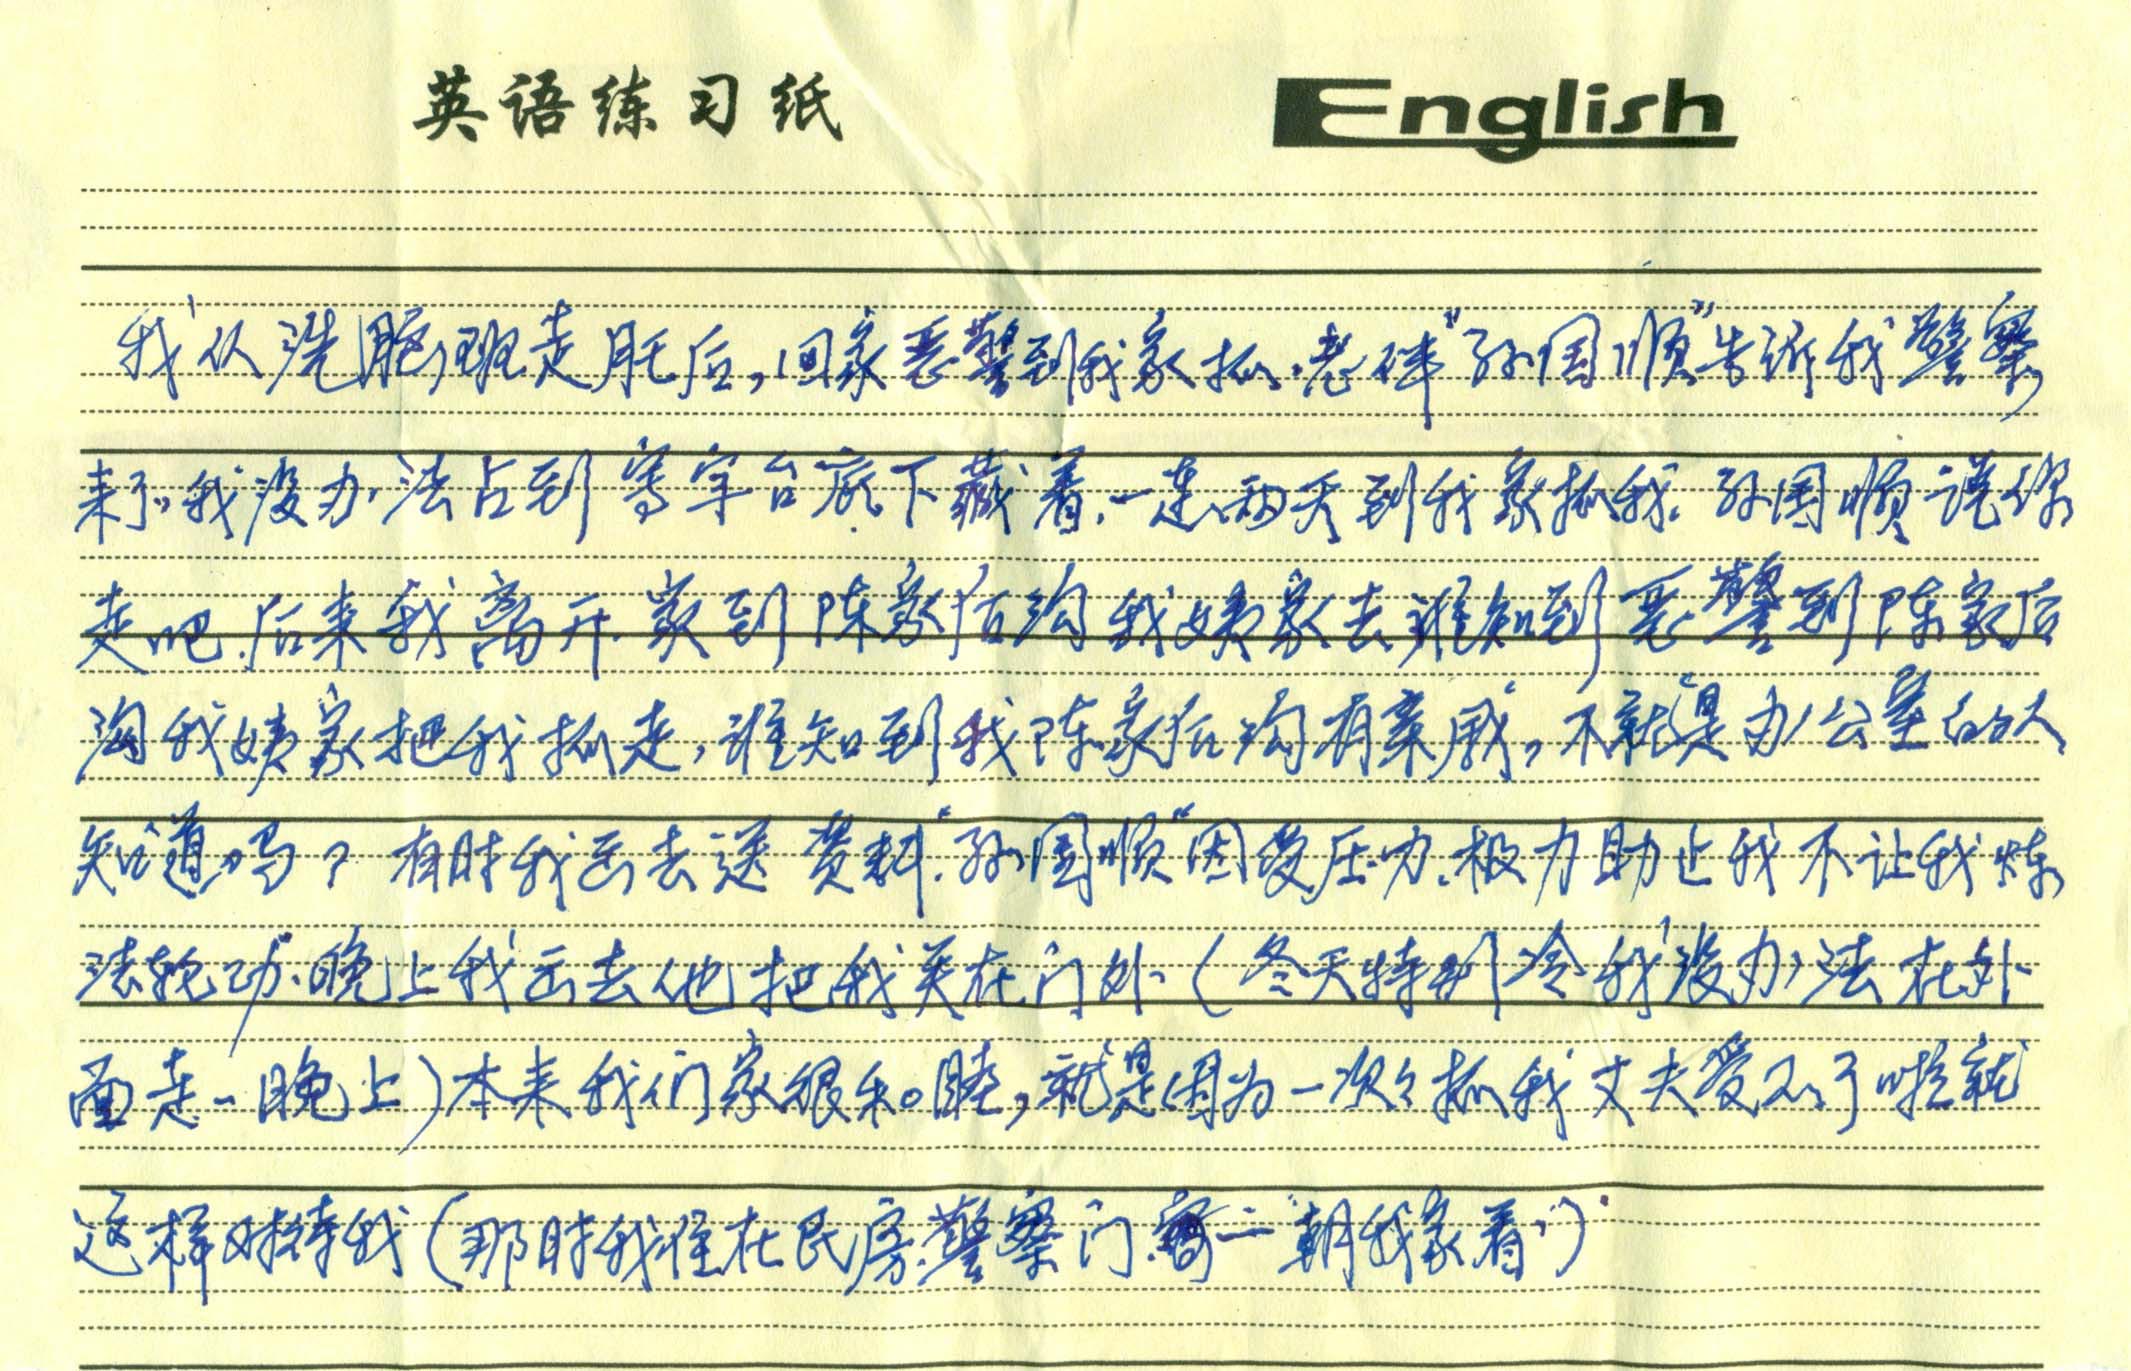 英语练习纸 English
我从洗脑班走脱后,回家恶警到我家抓.老伴"孙国顺"告诉我警察
来了,我没办法占到写字台底下藏着.一连两天到我家抓我.孙国顺说你
走吧.后来我离开家到陈家后沟我姨家去谁知到恶警到陈家后
沟我姨家把我抓走,谁知到我陈家后沟有亲戚,不就是办公室的人
知道吗?有时我出去送资料."孙国顺"因受压力.极力助止我不让我炼
法轮功.晚上我出去他把我关在门外(冬天特别冷我没办法在外
面走一晚上)本来我们家很和睦,就是因为一次次抓我丈夫受不了啦就
这样对待我(那时我住在民房.警察门.朝我家看)